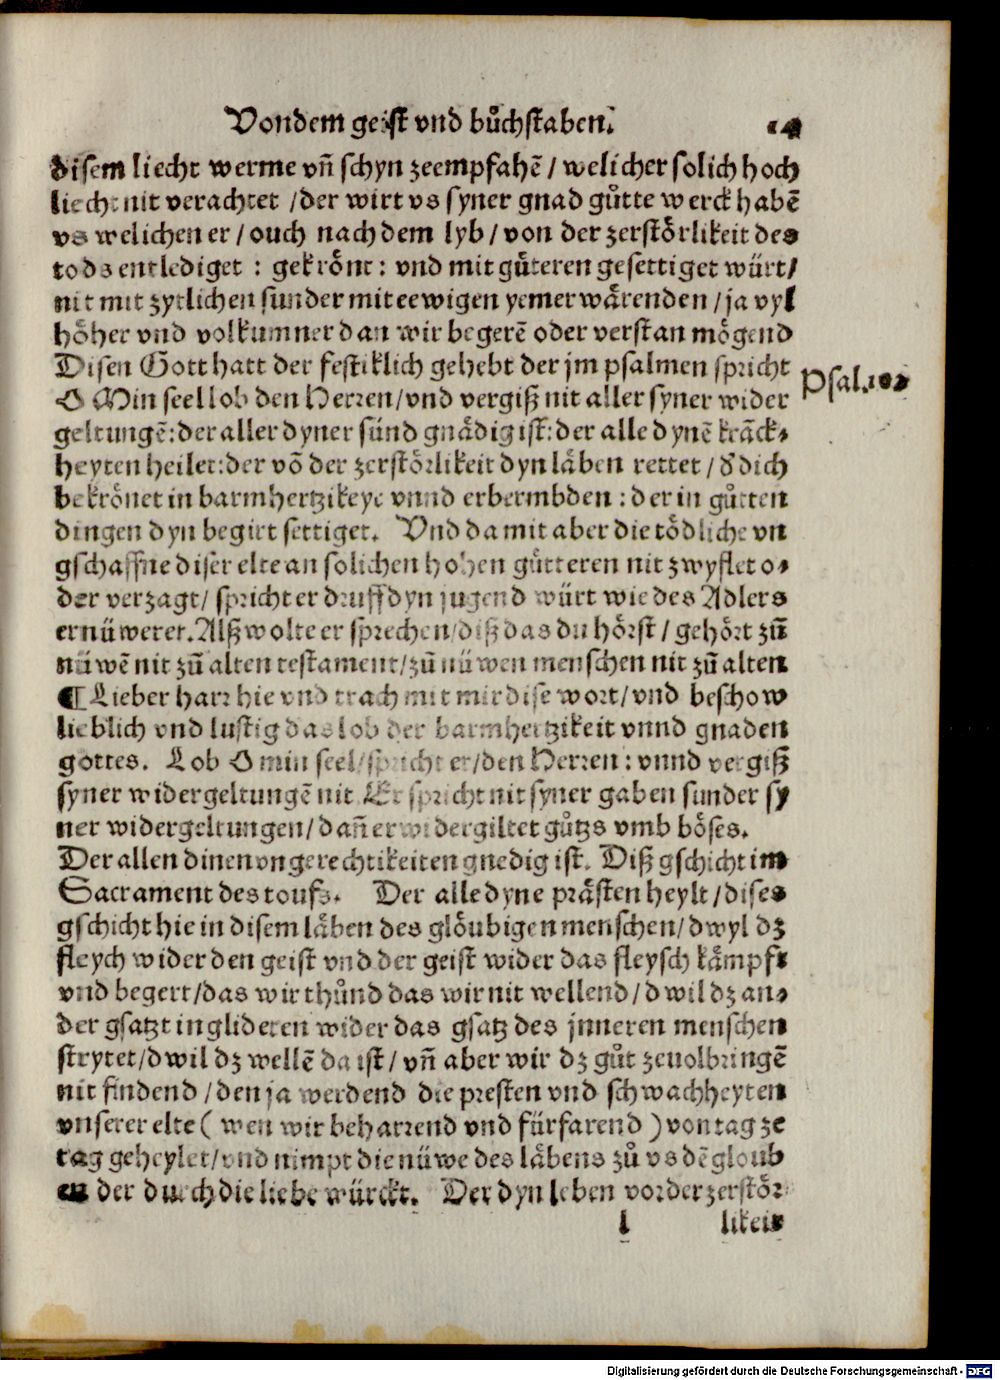 Von dem geist vnd bůchstaben. 14
disem liecht werme vñ schyn zeempfahẽ / welicher solich hoch
liecht nit verachtet / der wirt vs syner gnad gůtte werck habẽ
vs welichen er / ouch nach dem lyb / von der zerstörlikeit des
tods entlediget : gekrönt : vnd mit gůteren gesettiget würt /
nit mit zytlichen sunder mit eewigen yemerwärenden / ja vyl
höher vnd volkumner dan wir begerẽ oder verstan mögend
Disen Gott hatt der festiklich gehebt der jm psalmen spricht
O Min seel lob den Herren / vnd vergiß nit aller syner wider
geltungẽ : der aller dyner sünd gnädig ist : der alle dynẽ kräck⸗
heyten heilet : der võ der zerstörlikeit dyn läben rettet / d' dich
bekrönet in barmhertzikeyt vnnd erbermbden : der in gůtten
dingen dyn begirt settiget. Vnd damit aber die tödliche vn
gschaffne diser elte an solichen hohen gůtteren nit zwyflet o⸗
der verzagt / spricht er druff dyn jugend würt wie des Adlers
ernüweret. Alß wolte er sprechen / diß das du hörst / gehört zů
nüwẽ nit zů alten testament / zů nüwen menschen nit zů alten
¶ Lieber harr hie vnd tracht mit mir dise wort / vnd beschow
lieblich vnd lustig das lob der barmhertzikeit vnnd gnaden
gottes. Lob O min seel / spricht er / den Herren : vnnd vergiß
syner widergeltungẽ nit Er spricht nit syner gaben sunder sy
ner widergeltungen / dañ er widergiltet gůtzs vmb böses.
Der allen dinen vngerechtikeiten gnedig ist. Diß gschicht im
Sacrament des toufs. Der alle dyne prästen heylt / dises
gschicht hie in disem läben des glöubigen menschen / dwyl dz
fleych wider den geist vnd der geist wider das fleysch kämpft
vnd begert / das wir thůnd das wir nit wellend / dwil dz an⸗
der gsatzt in glideren wider das gsatz des jnneren menschen
strytet / dwil dz wellẽ da ist / vñ aber wir dz gůt zeuolbringẽ
nit findend / den ja werdend die presten vnd schwachheyten
vnserer elte ( wen wir beharrend vnd fürfarend ) von tag ze
tag geheylet / vnd nimpt die nüwe des läbens zů vs dẽ gloub
en der durch die liebe würckt. Der dyn leben vor der zerstör⸗
l likeit
Psal. 102
Digitalisierung gefördert durch die Deutsche Forschungsgemeinschaft - DFG